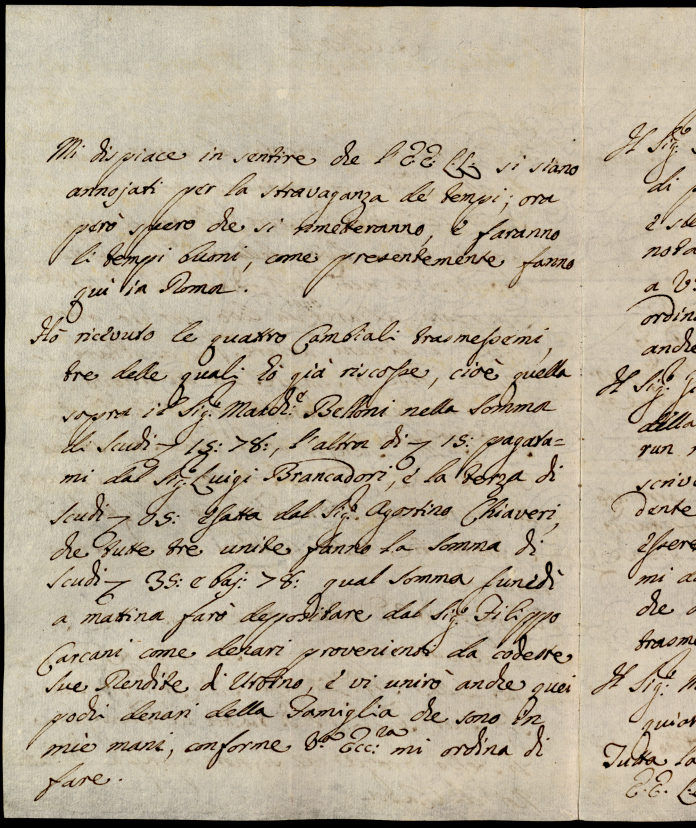 Mi dispiace in sentire che l'EE. LL. si siano
annojati per la stravaganza de tempi; ora
però spero che si rimetteranno, e faranno
li tempi buoni, come presentemente fanno
qui in Roma.
Hò ricevuto le quattro Cambiali trasmessemi,
tre delle quali hò già riscosse, cioè quella
sopra il Sig.e March.e Belloni nella somma
di Scudi 15: 78:, l'altra di 15: pagata=
mi dal Sig.e Luigi Brancadori, e la terza di
Scudi 05: esatta dal Sig.e Agostino Chiaveri,
che tutte tre unite fanno la somma di
Scudi 35: e baj: 78: qual somma lunedì
a matina farò depositare dal Sig.e Filippo
Carcani come denari provenienti da codeste
sue Rendite di Urbino, e vi unirò anche quei
pochi denari della Famiglia che sono in
mie mani, conforme V.a Ecc:za mi ordina di
fare.
Il Sig.e
di
nota
a V:
ordin
anche
Il Sig.e
della
run
scrivo
dente
essere
mi
che
trasme
Il Sig.e
Tutta la
E.E.